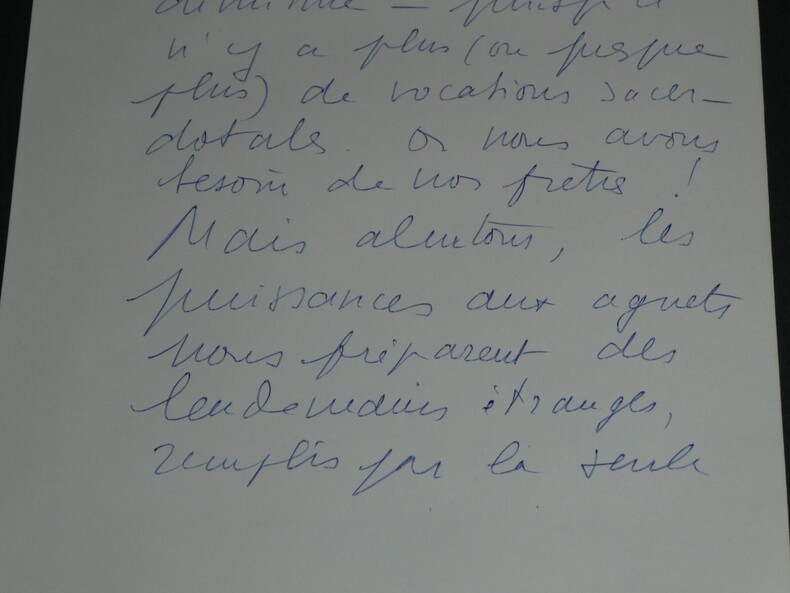 diminue — puisqu'il
n'y a plus (ou presque
plus) de vocations sacer-
dotales. Or nous avons
besoin de nos prêtres !
Mais alentours, les
puissances aux aguets
nous préparent des
lendemains étranges,
remplis par la seule